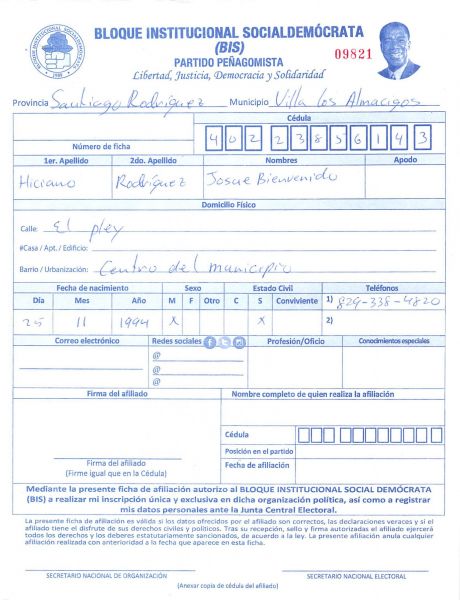 BLOQUE INSTITUCIONAL SOCIALDEMÓCRATA
(BIS)
09821
PARTIDO PEÑAGOMISTA
Libertad, Justicia, Democracia y Solidaridad
BLOQUE INSTITUCIONAL SOCIALDEMÓCRATA
Provincia Santiago Rodríguez Municipio Villa Los Almacigos
Cédula
Número de ficha 40223856143
1er. Apellido 2do. Apellido Nombres Apodo
Hiciano Rodríguez Josue Bienvenido
Domicilio Físico
Calle: El pley
#Casa / Apt. / Edificio:
Barrio / Urbanización: Centro del municipio
Fecha de nacimiento Sexo Estado Civil Teléfonos
Día Mes Año M F Otro C S Conviviente 1) 829-338-4820
25 11 1994 X X 2)
Correo electrónico Redes sociales Profesión/Oficio Conocimientos especiales
@
@
@
Firma del afiliado Nombre completo de quien realiza la afiliación
Cédula
Posición en el partido
Firma del afiliado
(Firme igual que en la Cédula)
Fecha de afiliación
Mediante la presente ficha de afiliación autorizo al BLOQUE INSTITUCIONAL SOCIAL DEMÓCRATA
(BIS) a realizar mi inscripción única y exclusiva en dicha organización política, así como a registrar
mis datos personales ante la Junta Central Electoral.
La presente ficha de afiliación es válida si los datos ofrecidos por el afiliado son correctos, las declaraciones veraces y si el
afiliado tiene el disfrute de sus derechos civiles y políticos. Tras su recepción, sello y firma autorizadas el afiliado ejercerá
todos los derechos y los deberes estatutariamente sancionados, de acuerdo a la ley. La presente afiliación anula cualquier
afiliación realizada con anterioridad a la fecha que aparece en esta ficha.
SECRETARIO NACIONAL DE ORGANIZACIÓN SECRETARIO NACIONAL ELECTORAL
(Anexar copia de cédula del afiliado)